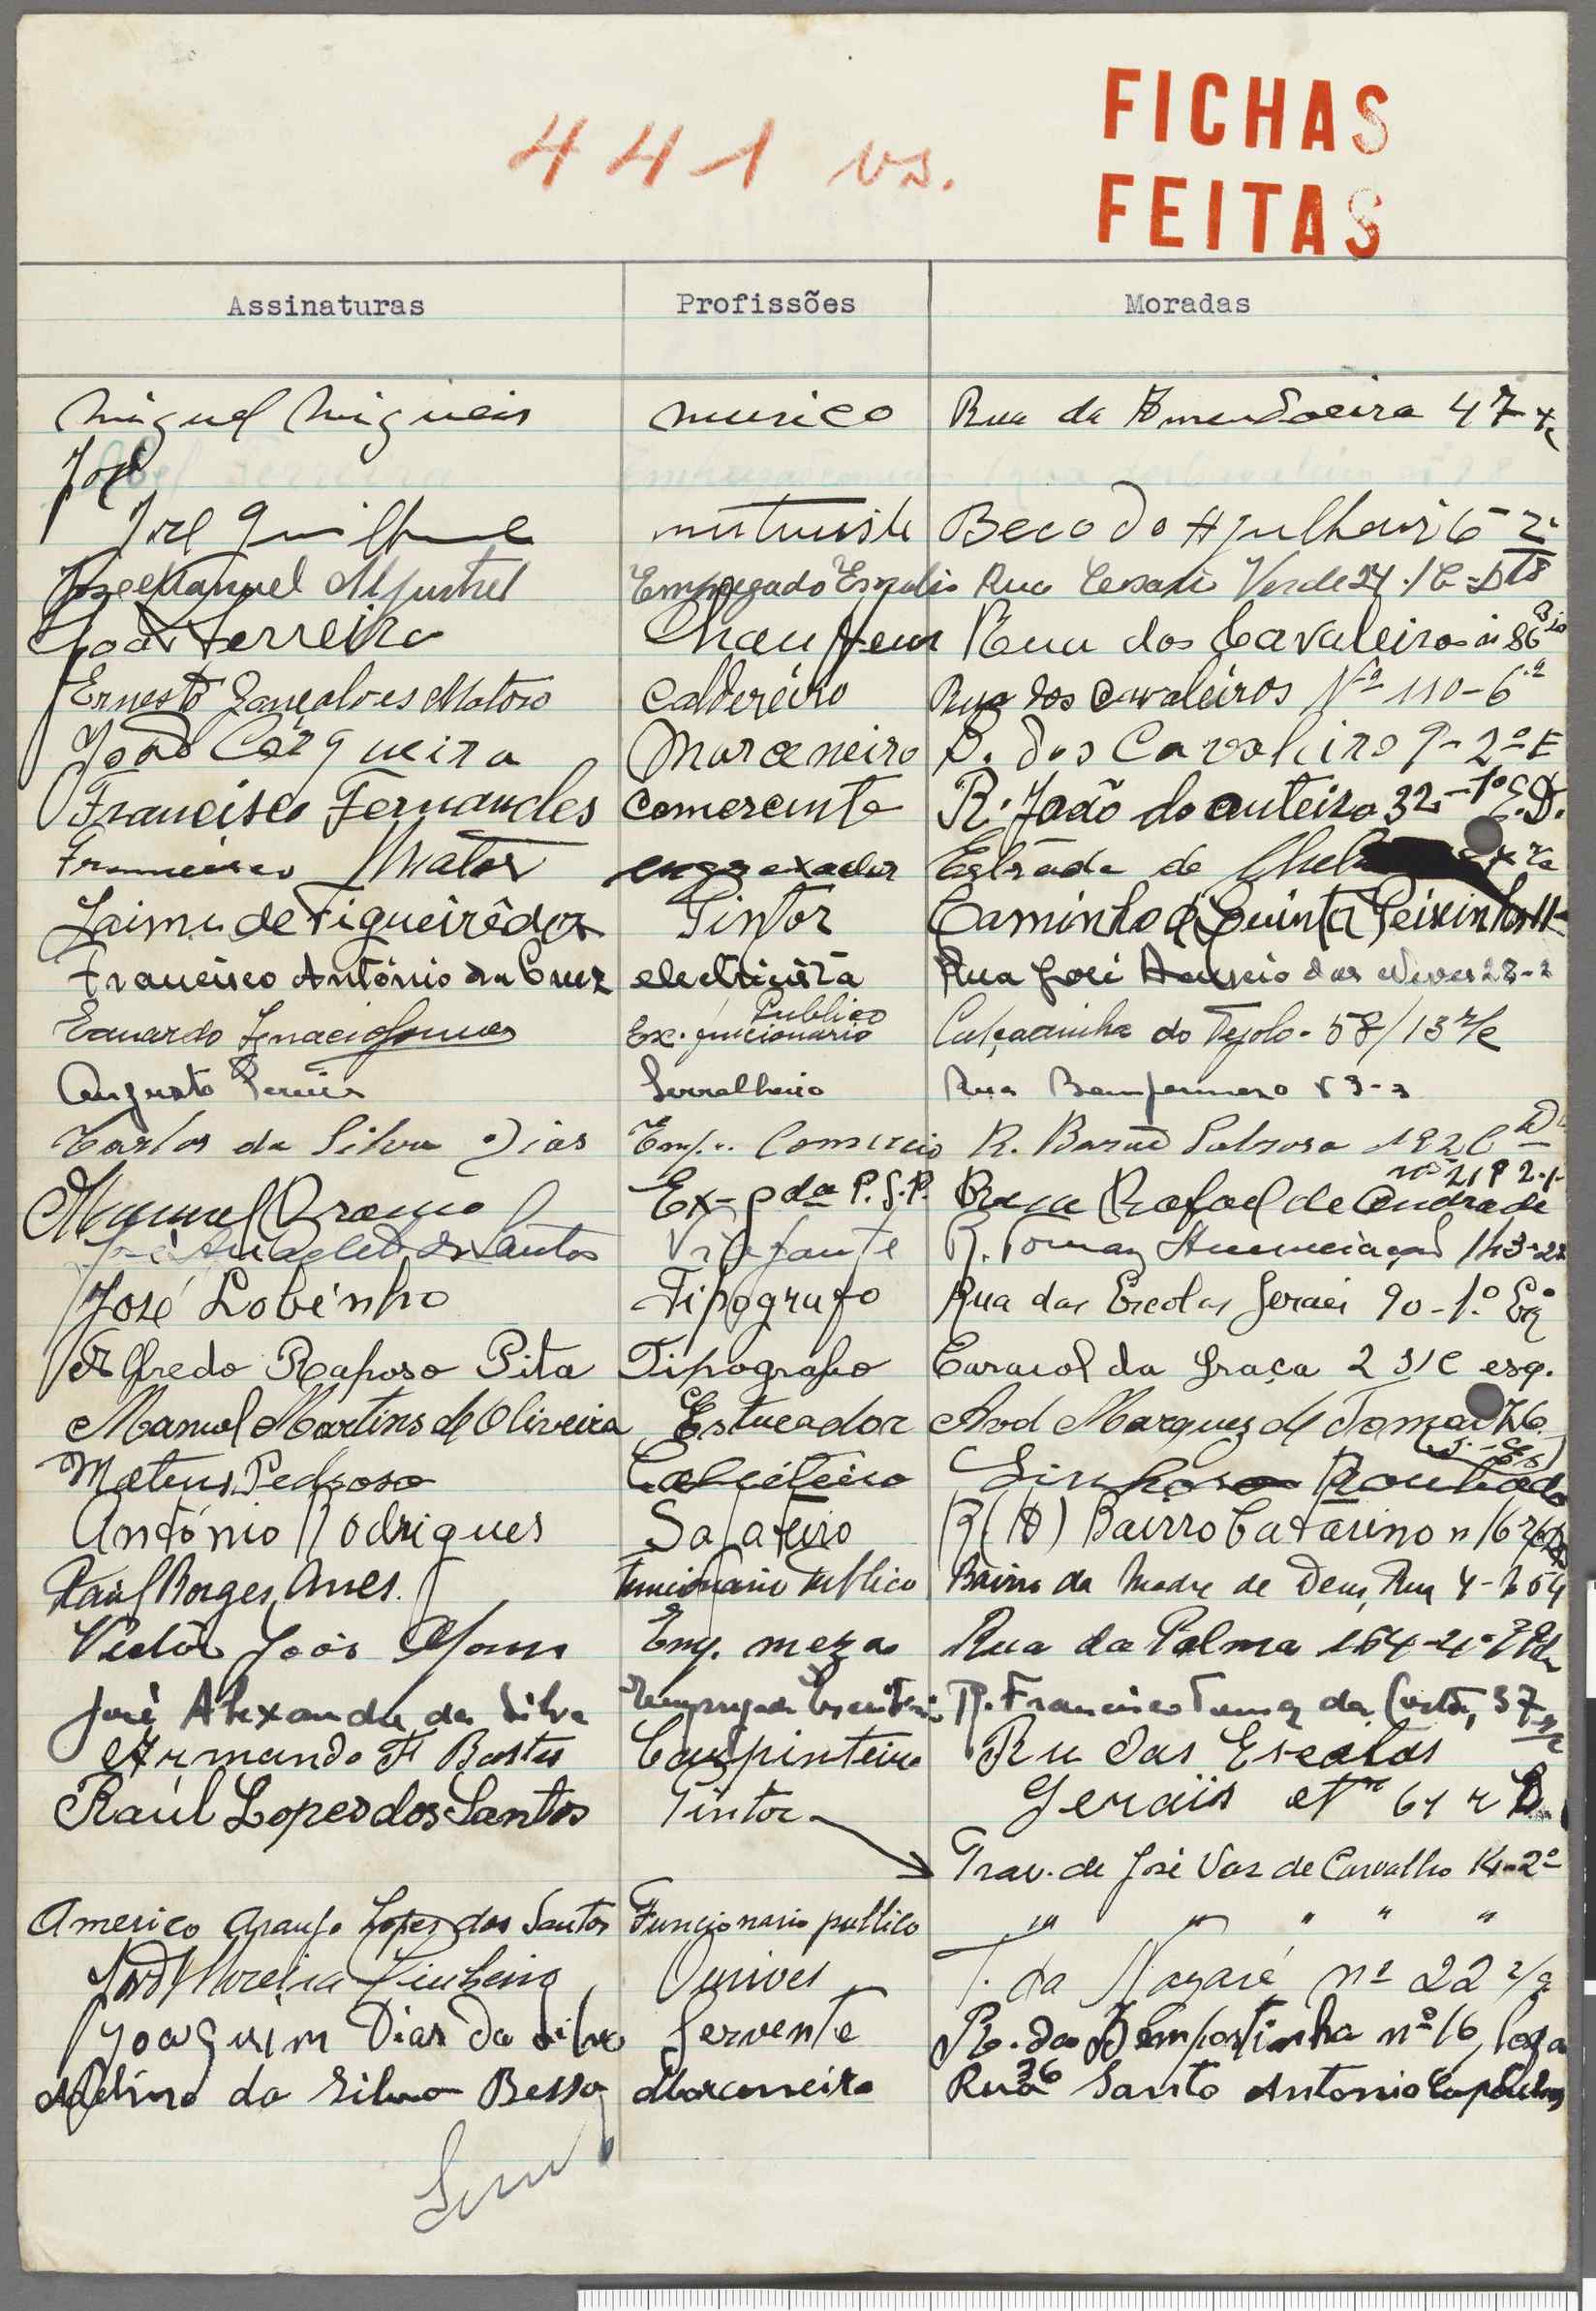 FICHAS
441 vs.
FEITAS
Assinaturas Profissões Moradas
Miguel Migueis musico Rua da Amendoeira 47 r/c
José
José Guilherme Beco do 6 2º
José Manuel Aljustrel Empregado Rua Cesario Verde 27 r/c Dtº
João Ferreira Chauffeur Rua dos Cavaleiros nº 86
Ernesto Gonçalves Matoso Caldereiro Rua dos Cavaleiros Nº 110-6º
João Cerqueira Marceneiro R. dos Cavaleiro 9-2º E
Francisco Fernandes Comerciante R. João do outeiro 32-1º E.D.
Francisco Matos engraxador Estrada de
Jaime de Figueirêdo Pintor Caminho Quinta Peixinhos 11
Francisco António da Cruz electricista Rua José Acursio das Neves 28-2
Publico
Eduardo Ignacio Gomes Ex. funcionario Calçadinha do Tijolo-58/13 r/c
Augusto Serralheiro Rua Bemformoso 83-3
Carlos da Silva Dias Emp. Comercio R. Barão Sabrosa 192
nº 21
Manuel Ex-gda P.S.P. Rua Rafael de Andrade
José Anacleto dos Santos Vigilante R. Tomaz Anunciação 143-2º
José Lobinho Tipografo Rua das Escolas Gerais 90-1.º Eq
Alfredo Raposo Pita Tipografo Caracol da Graça 2 r/c esq.
Manuel Martins de Oliveira Estucador Avd Marquez de Tomar 76
Mateus Pedroso
António Rodrigues Sapateiro R(D) Bairro Catarino n 16
Raúl Borges Anes. Funcionario Publico Bairro da Madre de Deus, Rua 4-
Victor João Emp. meza Rua da Palma 164-2º
José Alexandre da Silva Empregado Escritorio R. Francisco Tomaz da Costa, 37
Armando F Bastos Carpinteiro Ru das Escolas
Raúl Lopes dos Santos Pintor Gerais nº 61 r D
Trav. de José Vaz de Carvalho 14-2º
Americo Araujo Lopes dos Santos Funcionario publico " " " " "
José Moreira Pinheiro Ourives T. da Nazaré nº 22 r/c
Joaquim Dias da Silva Servente R. da Bempostinha nº 16, loja
Adelino da Silva Bessa Marceneiro Rua 36 Santo Antonio Capuchos